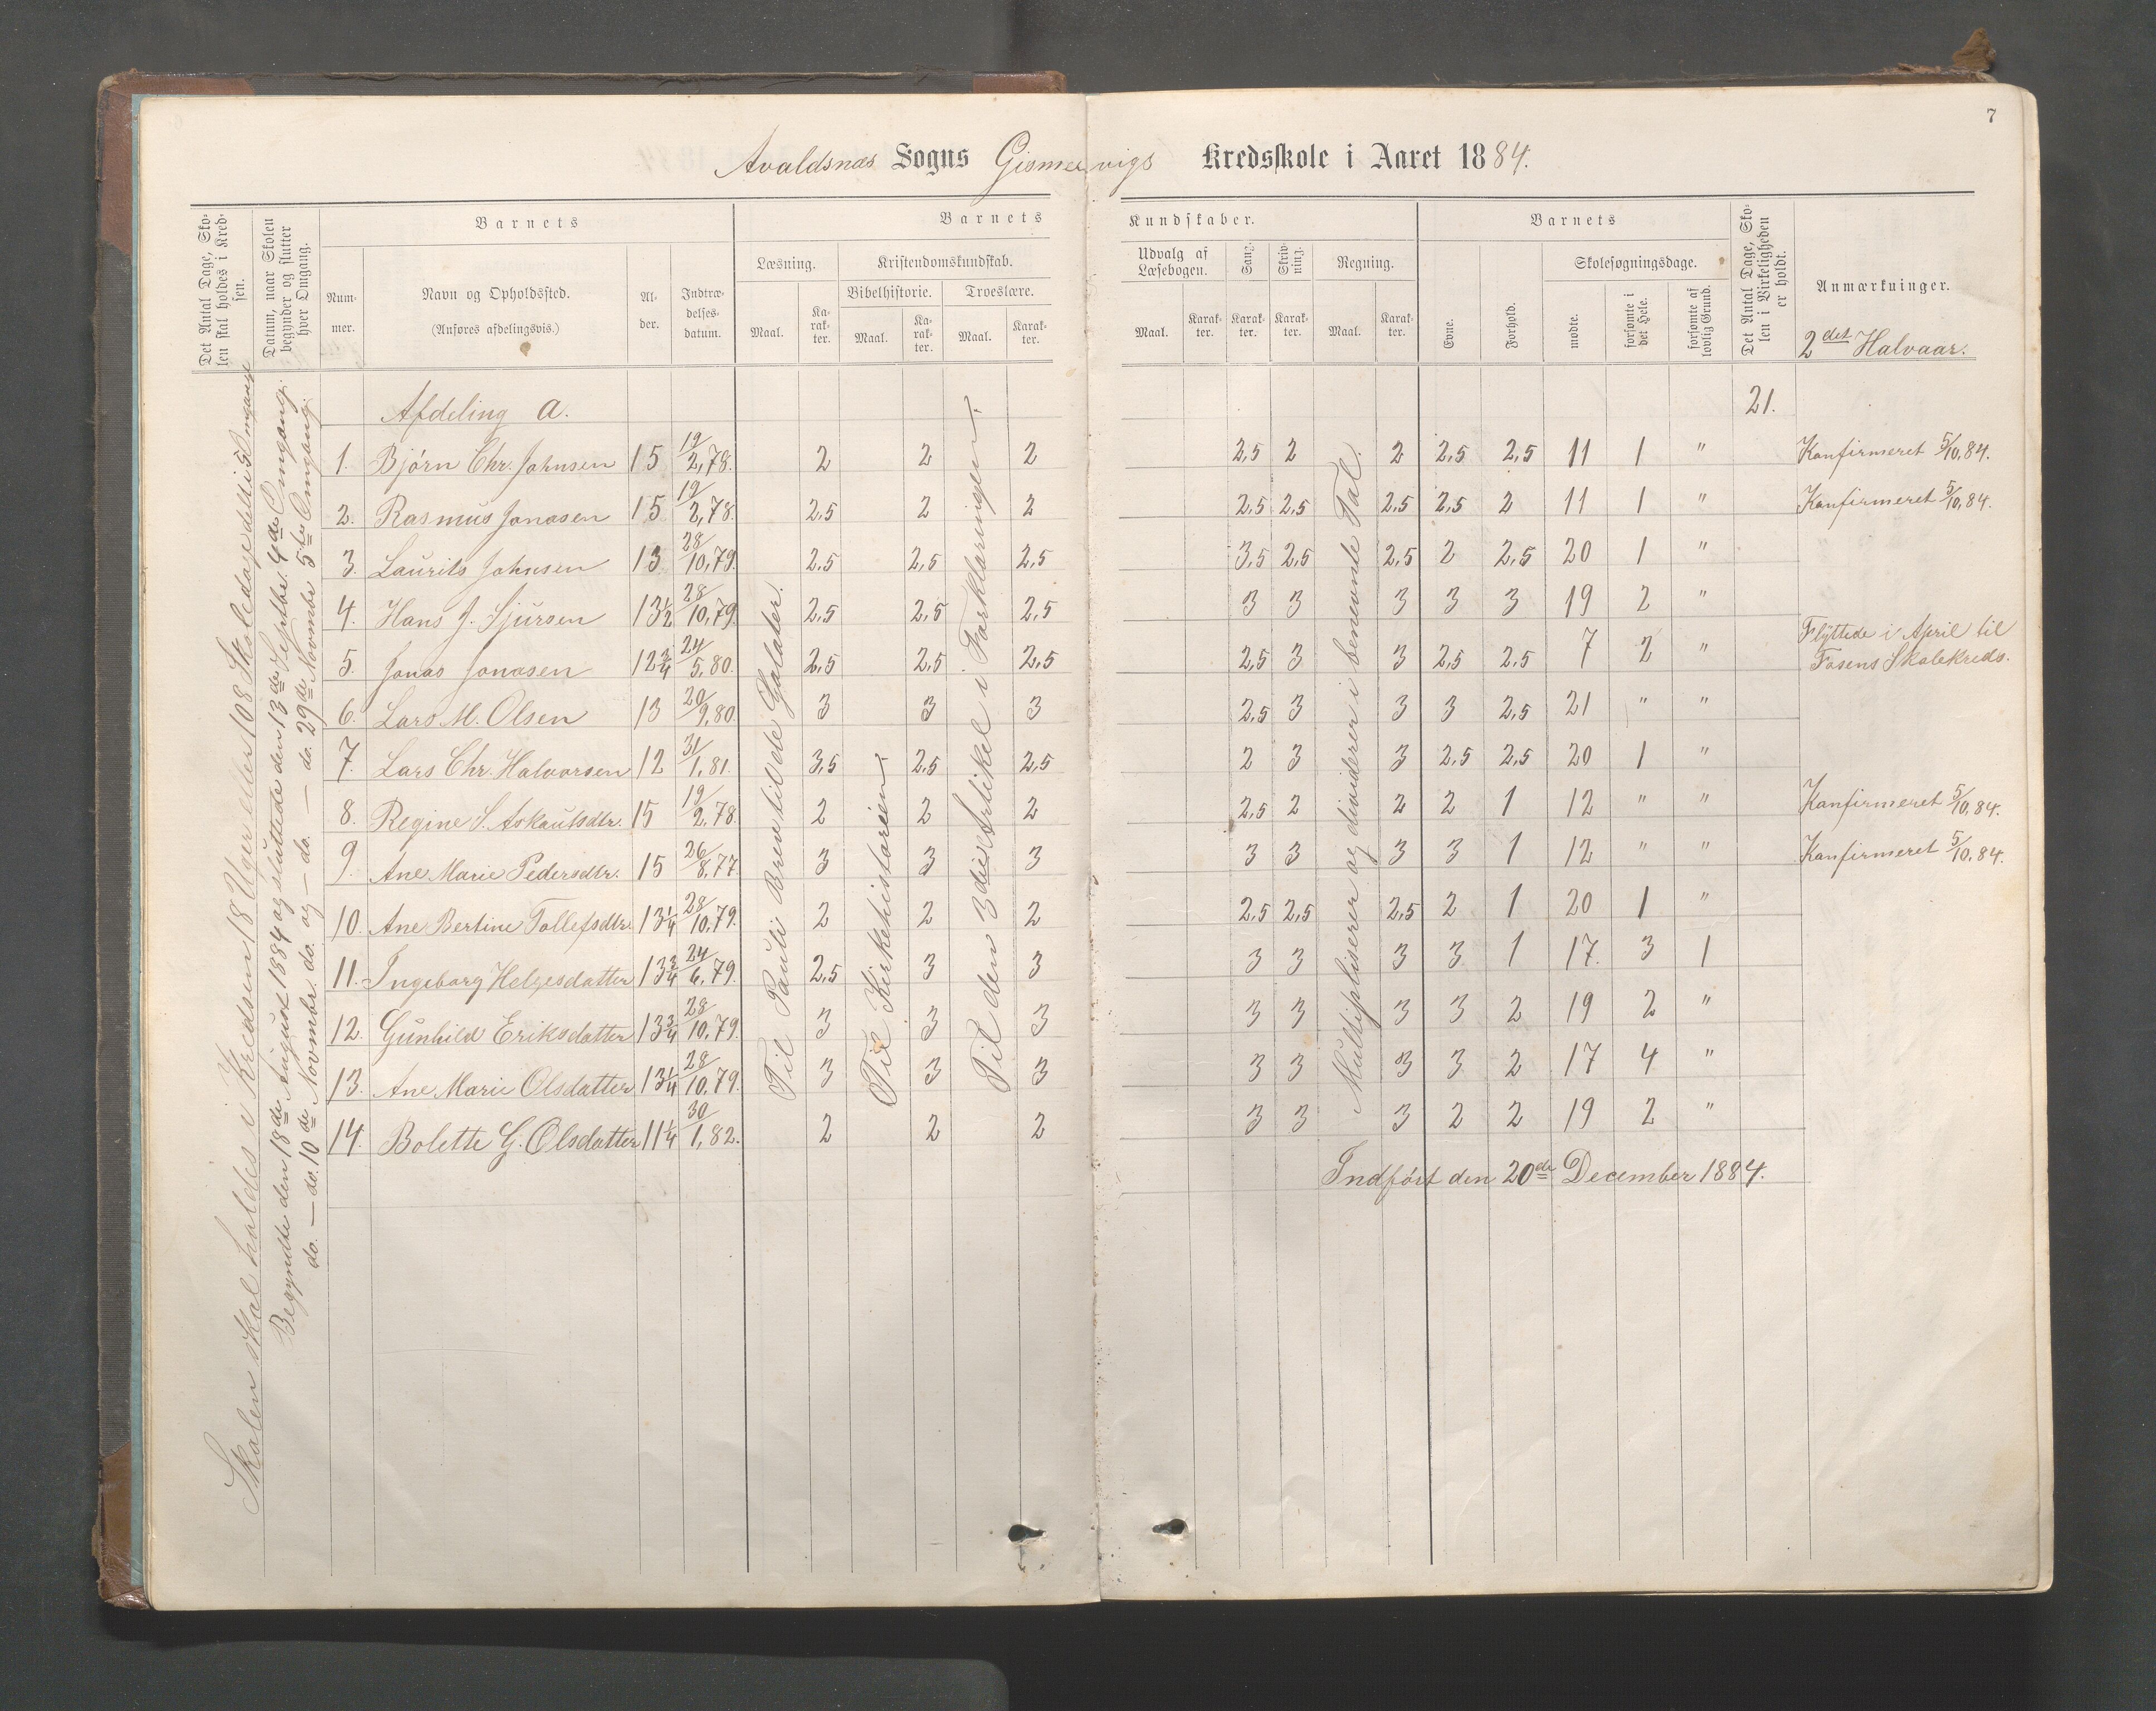 7
Avaldsnæs Sogns Gismervigs Kredsskole i Aaret 1884.
Det Antal Dage, Skolen skal holdes i Kredsen.
Datum, naar Skolen begynder og slutter hver Omgang.
Barnets
Nummer.
Navn og Opholdssted.
(Anføres afdelingsvis.)
Alder.
Indtrædelsesdatum.
Barnets Kundskaber.
Læsning.
Maal.
Karakter.
Kristendomskundskab.
Bibelhistorie.
Maal.
Karakter.
Troeslære.
Maal.
Karakter.
Udvalg af Læsebogen.
Maal.
Karakter.
Sang.
Karakter.
Skrivning.
Karakter.
Regning.
Maal.
Karakter.
Barnets
Evne.
Forhold.
Skolesøgningsdage.
mødte.
forsømte i det Hele.
forsømte af lovlig Grund.
Det Antal Dage, Skolen i Virkeligheden er holdt.
Anmærkninger.
2det Halvaar.
Skolen skal holdes i Kredsen 18 Uger eller 108 Skoledage deelt i 5 Omgange
Begyndte den 18de August 1884 og sluttede den 13de Septbr. 4de Omgang.
do. — do. 10de Novmbr. do. og — do. — do. 29de Novmbr. 5te Omgang.
Afdeling a. 21.
1. Bjørn Chr. Johnsen 15 19/2,78. 2 2 2 2,5 2 2 2,5 2,5 11 1 " Konfirmeret 5/10,84.
2. Rasmus Jonasen 15 19/2,78. 2,5 2 2 2,5 2,5 2,5 2,5 2 11 1 " Konfirmeret 5/10,84.
3. Laurits Johnsen 13 28/10,79. 2,5 2,5 2,5 3,5 2,5 2,5 2 2,5 20 1 "
4. Hans J. Sjursen 13 1/2 28/10,79. 2,5 2,5 2,5 3 3 3 3 3 19 2 "
5. Jonas Jonasen 12 3/4 24/5,80. 2,5 2,5 2,5 2,5 3 3 2,5 2,5 7 2 " Flyttede i April til Fosens Skolekreds.
6. Lars M. Olsen 13 20/9,80. 3 3 3 2,5 3 3 3 2,5 21 " "
7. Lars Chr. Halvorsen 12 31/1,81. 3,5 2,5 2,5 2 3 3 2,5 2,5 20 1 "
8. Regine S. Askautsdtr. 15 19/2,78. 2 2 2 2,5 2 2 2 1 12 " " Konfirmeret 5/10,84.
9. Ane Marie Pedersdtr. 15 26/8,77. 3 3 3 3 3 3 3 1 12 " " Konfirmeret 5/10,84.
10. Ane Bertine Tollefsdtr. 13 1/4 28/10,79. 2 2 2 2,5 2,5 2,5 2 1 20 1 "
11. Ingeborg Helgesdatter 13 3/4 24/6,79. 2,5 3 3 3 3 3 3 1 17. 3 1
12. Gunhild Eriksdatter 13 3/4 28/10,79. 3 3 3 3 3 3 3 2 19 2 "
13. Ane Marie Olsdatter 13 1/4 28/10,79. 3 3 3 3 3 3 3 2 17 4 "
14. Bolette G. Olsdatter 11 1/4 30/1,82. 2 2 2 3 3 3 2 2 19 2 "
Til Pauli Brev til de Galater.
Til Kirkehistorien.
Til den 3die Artikel i Forklaringen.
Multipliserer og dividerer i benevnte Tal.
Indført den 20de December 1884.